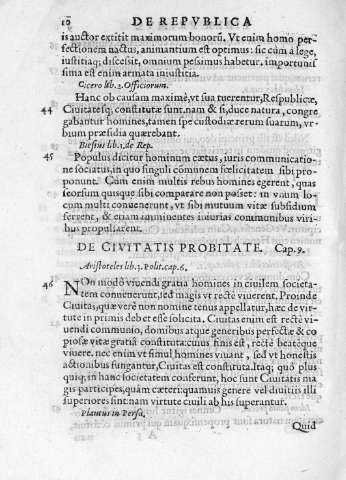 10 DE REPVBLICA
is auctor extitit maximorum bonorũ. Vt enim homo per-
fectionem nactus, animantium est optimus: sic cùm à lege,
iustitiaq; discessit, omnium pessimus habetur. importunis
sima est enim armata iniustitia.
Cicero lib. 2. Officiorum.
Hanc ob causam maximè, vt sua tuerentur, Respublicæ,
44 Ciuitatesq; constitutæ sunt. nam & si, duce natura, congre
gabantur homines, tamen spe custodiæ rerum suarum, vr-
bium præsidia quærebant.
Biesius lib. 1. de Rep.
45 Populus dicitur hominum cætus, iuris communicatio-
ne sociatus, in quo singuli cõmunem fœlicitatem sibi pro-
ponunt. Cùm enim multis rebus homines egerent, quas
seorsum quisque sibi comparare non posset: in vnum lo-
cum multi conuenerunt, vt sibi mutuum vitæ subsidium
ferrent, & etiam imminentes iniurias communibus viri-
bus propulsarent.
DE CIVITATIS PROBITATE. Cap. 9.
Aristoteles lib. 3. Polit. cap. 6.
46 NOn modò viuendi gratia homines in ciuilem societa-
tem conuenerunt, sed magis vt rectè viuerent. Proinde
Ciuitas, quæ verè non nomine tenus appellatur, hæc de vir-
tute in primis debet esse solicita. Ciuitas enim est rectè vi-
uendi communio, domibus atque generibus perfectæ & co
piosæ vitæ gratiâ constituta: cuius finis est, rectè beatéque
viuere. nec enim vt simul homines viuant, sed vt honestis
actionibus fungantur, Ciuitas est constituta. Itaq; quò plus
quisq; in hanc societatem conferunt, hoc sunt Ciuitatis ma
gis participes, quàm cæteri: quamuis genere vel diuitiis illi
superiores sint: nam virtute ciuili ab his superantur.
Plautus in Persa.
Quid